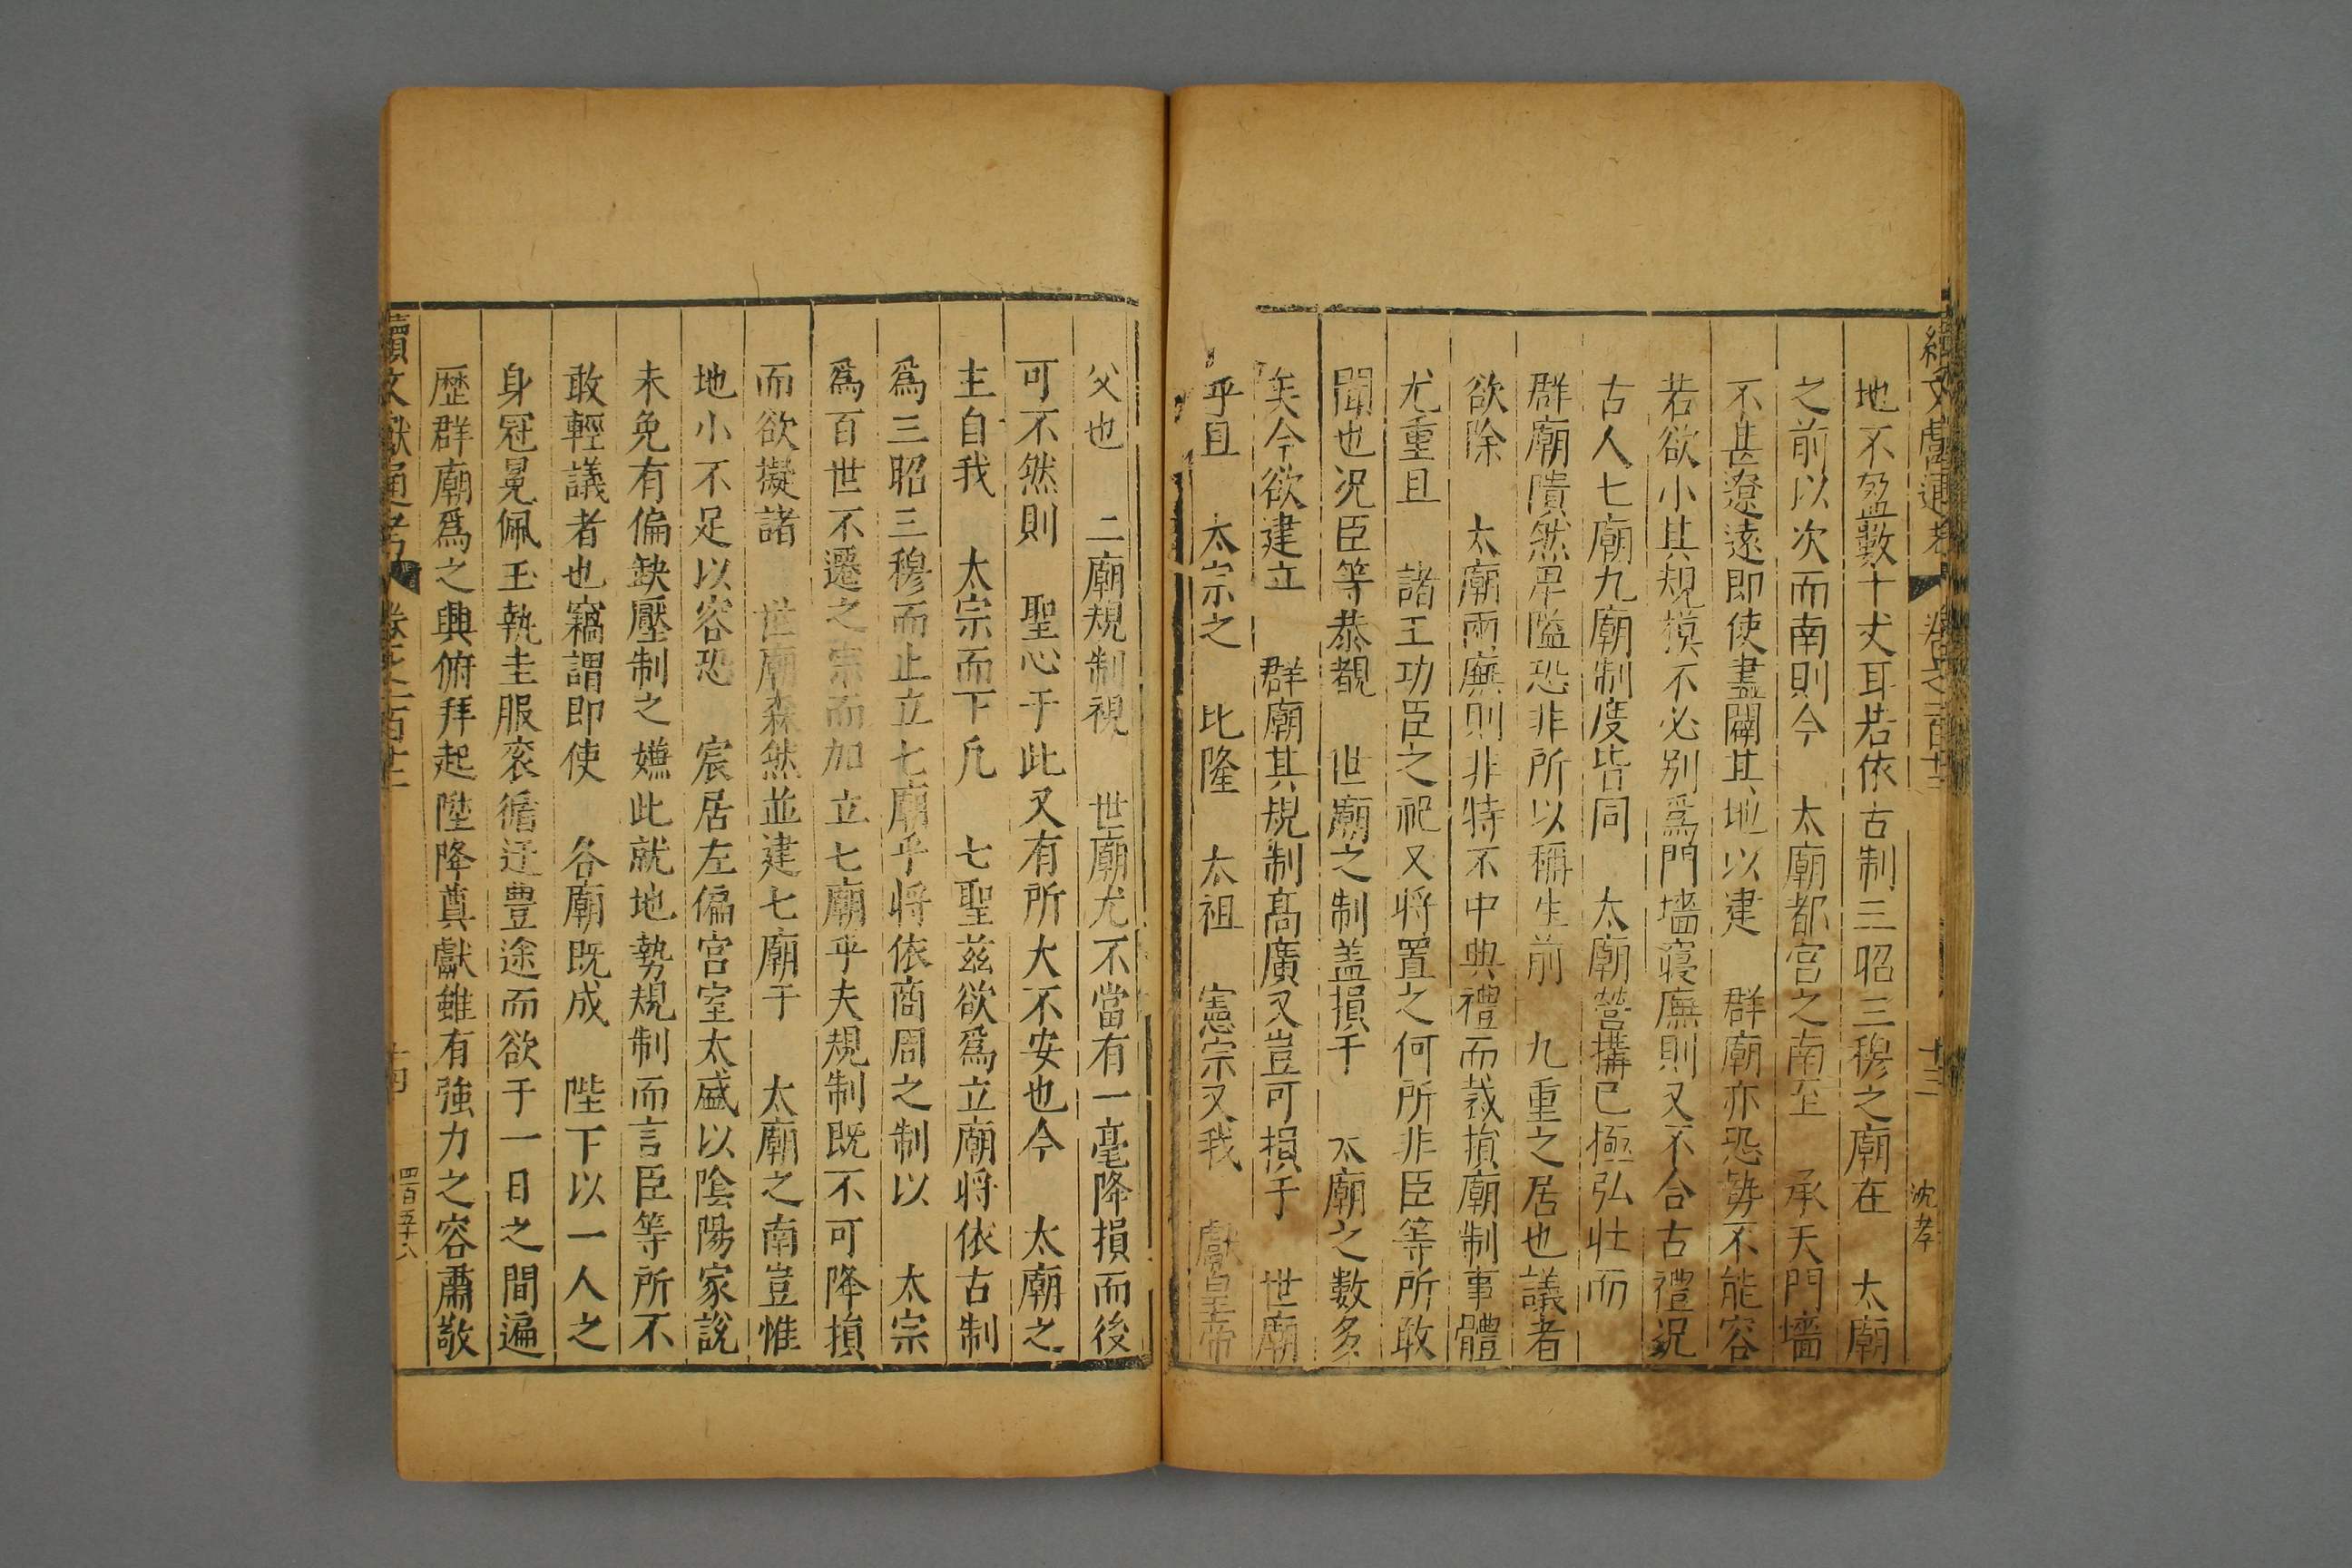 續文獻通考 卷之一百十三 十三 沈孝
地不盈數十丈耳若依古制三昭三穆之廟在 太廟
之前以次而南則今 太廟都宫之南至 承天門墻
不甚遼遠即使盡闢其地以建 群廟亦恐勢不能容
若欲小其規模不必别爲門墻寢廡則又不合古禮况
古人七廟九廟制度皆同 太廟營搆已極弘壯而
群廟隤然卑隘恐非所以稱生前 九重之居也議者
欲除 太廟兩廡則非特不中典禮而裁損廟制事體
尤重且 諸王功臣之祀又將置之何所非臣等所敢
聞也况臣等恭覩 世廟之制盖損于 太廟之數多
矣今欲建立 群廟其規制髙廣又豈可損于 世廟
乎且 太宗之 比隆 太祖 憲宗又我 獻皇帝
父也 二廟規制視 世廟尤不當有一毫降損而後
可不然則 聖心于此又有所大不安也今 太廟之
主自我 太宗而下凡 七聖兹欲爲立廟將依古制
爲三昭三穆而止立七廟乎將依商周之制以 太宗
爲百世不遷之宗而加立七廟乎夫規制既不可降損
而欲擬諸 世廟森然並建七廟于 太廟之南豈惟
地小不足以容恐 宸居左偏宫室太盛以陰陽家說
未免有偏缺壓制之嫌此就地勢規制而言臣等所不
敢輕議者也竊謂即使 各廟既成 陛下以一人之
身冠冕佩玉執圭服衮循迂豊途而欲于一日之間遍
歴群廟爲之興俯拜起陞降奠獻雖有強力之容肅敬
續文獻通考 卷之一百十三 十四 四百五十八